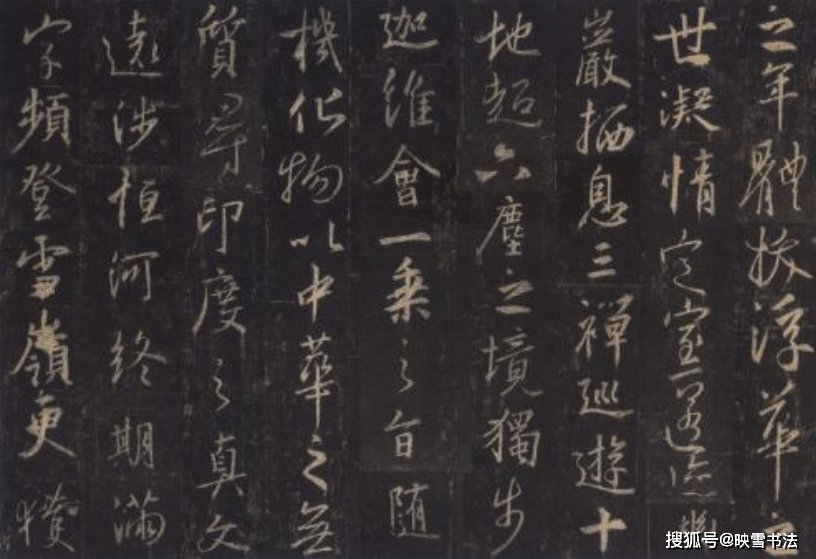 之年體拔浮華之
世凝情定室匿迹幽
巖栖息三禪巡遊十
地超六塵之境獨步
迦維會一乘之旨随
機化物以中華之無
質尋印度之真文
遠涉恒河終期滿
字頻登雪嶺更獲
搜狐号@映雪书法